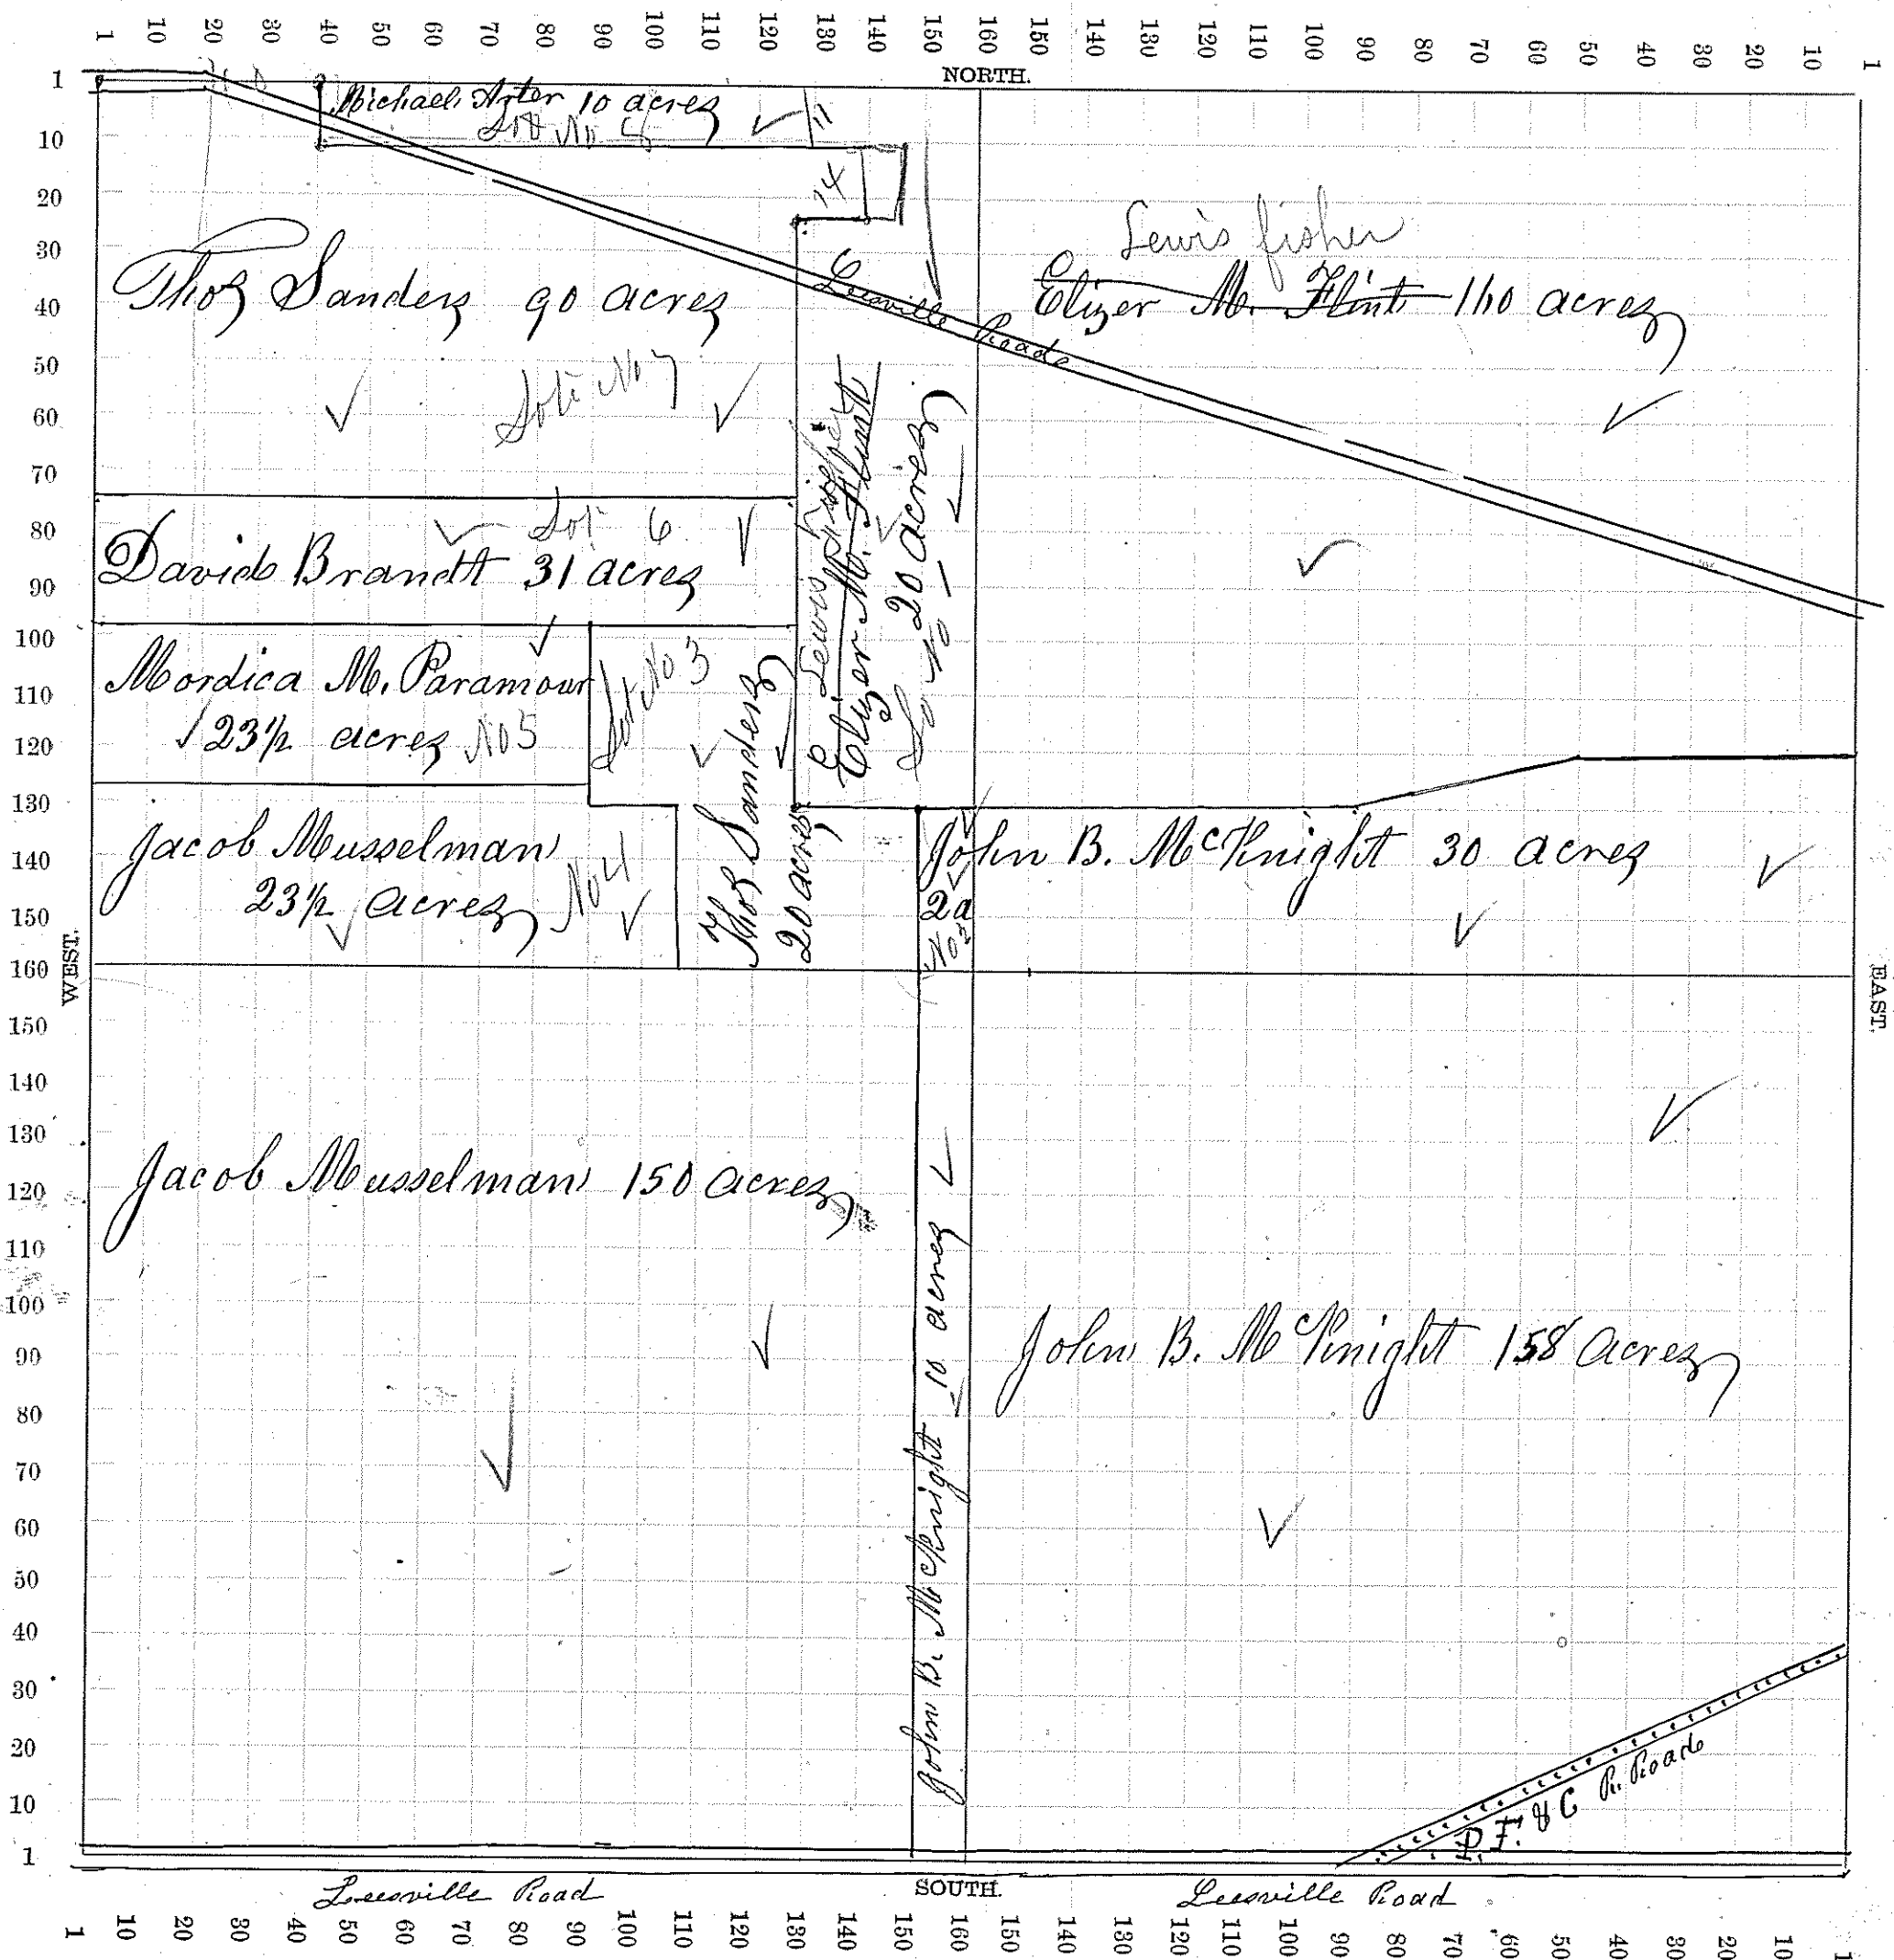 1 10 20 30 40 50 60 70 80 90 100 110 120 130 140 150 160 150 140 130 120 110 100 90 80 70 60 50 40 30 20 10 1
NORTH.
1
10
20
30
40
50
60
70
80
90
100
110
120
130
140
150
160
150
140
130
120
110
100
90
80
70
60
50
40
30
20
10
1
WEST.
EAST.
Michael 10 acres
11
14
Thos Sanders 90 acres
Lot No 7
Leesville Road
Lewis fisher
Elizer M. Flint 110 acres
Lot 6
David Brandt 31 acres
Lewis fisher
Elizer M. Flint
20 acres
Mordica M. Paramour
23½ acres No 5
Lot No 3
Thos Sanders
20 acres
Jacob Musselman
23½ acres No 4
John B. McKnight 30 acres
2a
No 2
Jacob Musselman 150 acres
John B. McKnight 10 acres
John B. McKnight 158 acres
P. F. & C R. Road
Leesville Road
SOUTH.
Leesville Road
1 10 20 30 40 50 60 70 80 90 100 110 120 130 140 150 160 150 140 130 120 110 100 90 80 70 60 50 40 30 20 10 1